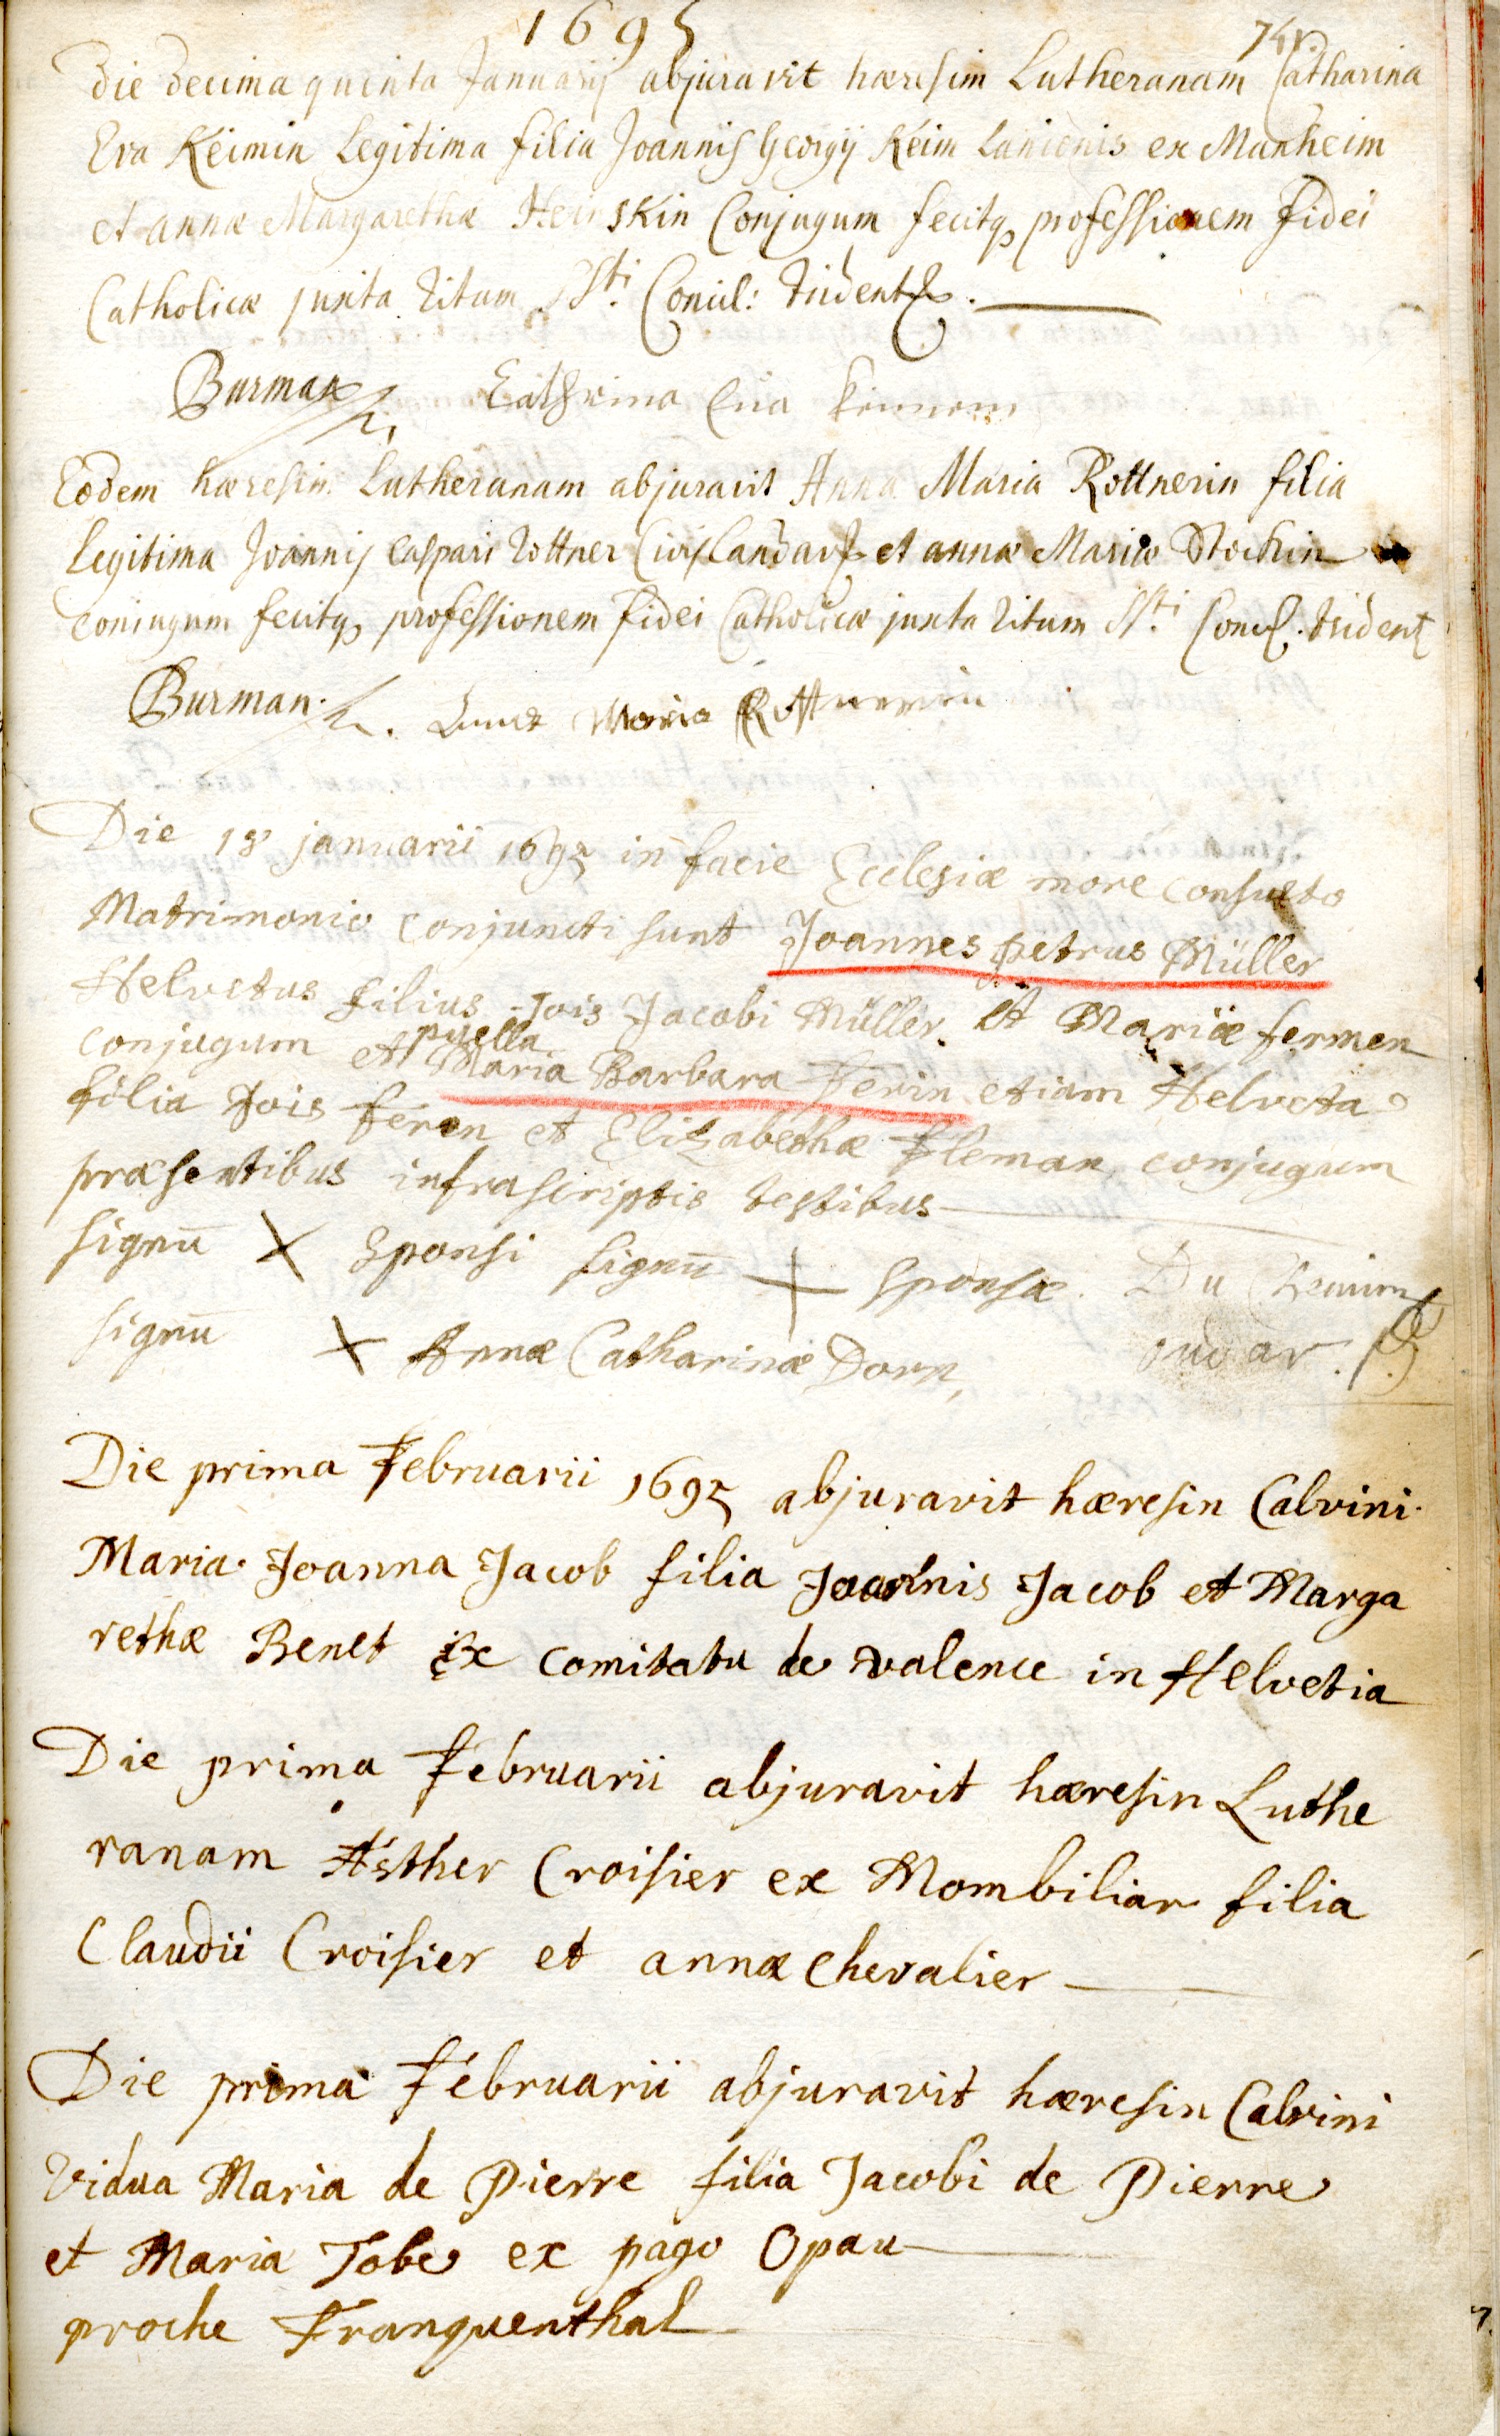 1695
74r.
Die decima quinta Januarij abjuravit hæresim Lutheranam Catharina
Eva Keimin Legitima filia Joannis Georgij Keim Lanionis ex Manheim
et annæ Margarethæ Heinskin Conjugum fecitq professionem fidei
Catholicæ juxta ritum SSti. Concil: trident.
Burman Cathrina Eva
Eodem hæresin Lutheranam abjuravit Anna Maria Rottnerin filia
Legitima Joannis Caspari Rottner Civis Landav. et annæ Mariæ Stockin
coniugum fecitq professionem fidei Catholicæ juxta ritum SSti Concil. trident
Burman. Maria Rottnerin
Die 18 januarii 1695 in facie Ecclesiæ more consueto
Matrimonio conjuncti sunt Joannes petrus Müller
Helvetus filius Jois Jacobi Müller et Mariæ fermen
conjugum et puella Maria Barbara Ferin etiam Helveta
filia Jois feren et Elizabethæ Fleman conjugum
præsentibus infrascriptis testibus
signū X Sponsi signū + sponsæ. Du
signū X Annæ Catharinæ Dorn,
Die prima Februarii 1695 abjuravit hæresin Calvini
Maria Joanna Jacob filia Joannis Jacob et Marga
rethæ Benet Ex comitatu de valence in Helvetia
Die prima Februarii abjuravit hæresin Luthe
ranam Æsther Croisier ex Mombiliar filia
Claudii Croisier et annæ chevalier
Die prima Februarii abjuravit hæresin Calvini
Vidua Maria de Pierre filia Jacobi de Pierre
et Maria Tobe ex pago Opau
proche Franquenthal